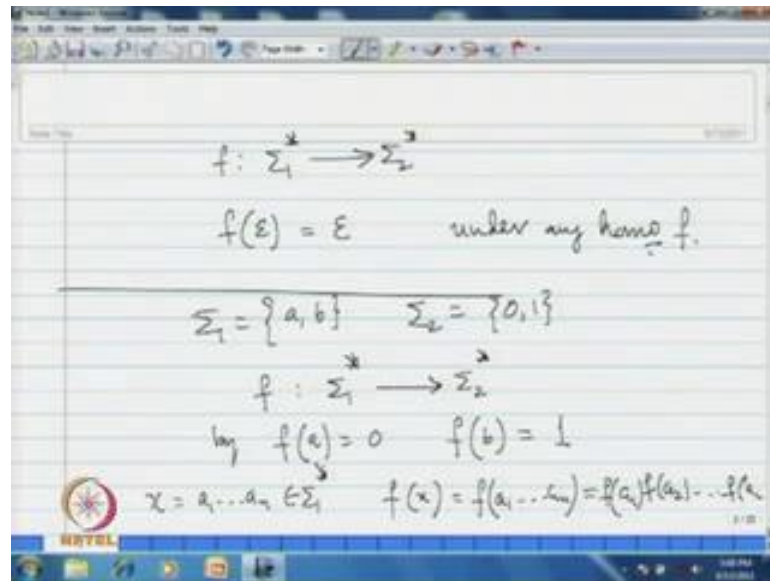 f: Σ₁* → Σ₂*
f(ε) = ε under any homo f.
Σ₁ = {a, b} Σ₂ = {0, 1}
f : Σ₁* → Σ₂*
by f(a) = 0 f(b) = 1
x = a₁...aₙ ∈ Σ₁* f(x) = f(a₁...aₙ) = f(a₁)f(a₂)...f(a
NPTEL